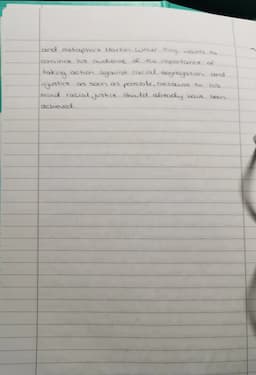 and metaphors Martin Luther King wants to
convince his audience of the importance of
taking action against racial segregation and
injustice as soon as possible, because to his
mind racial justice should already have been
achieved.